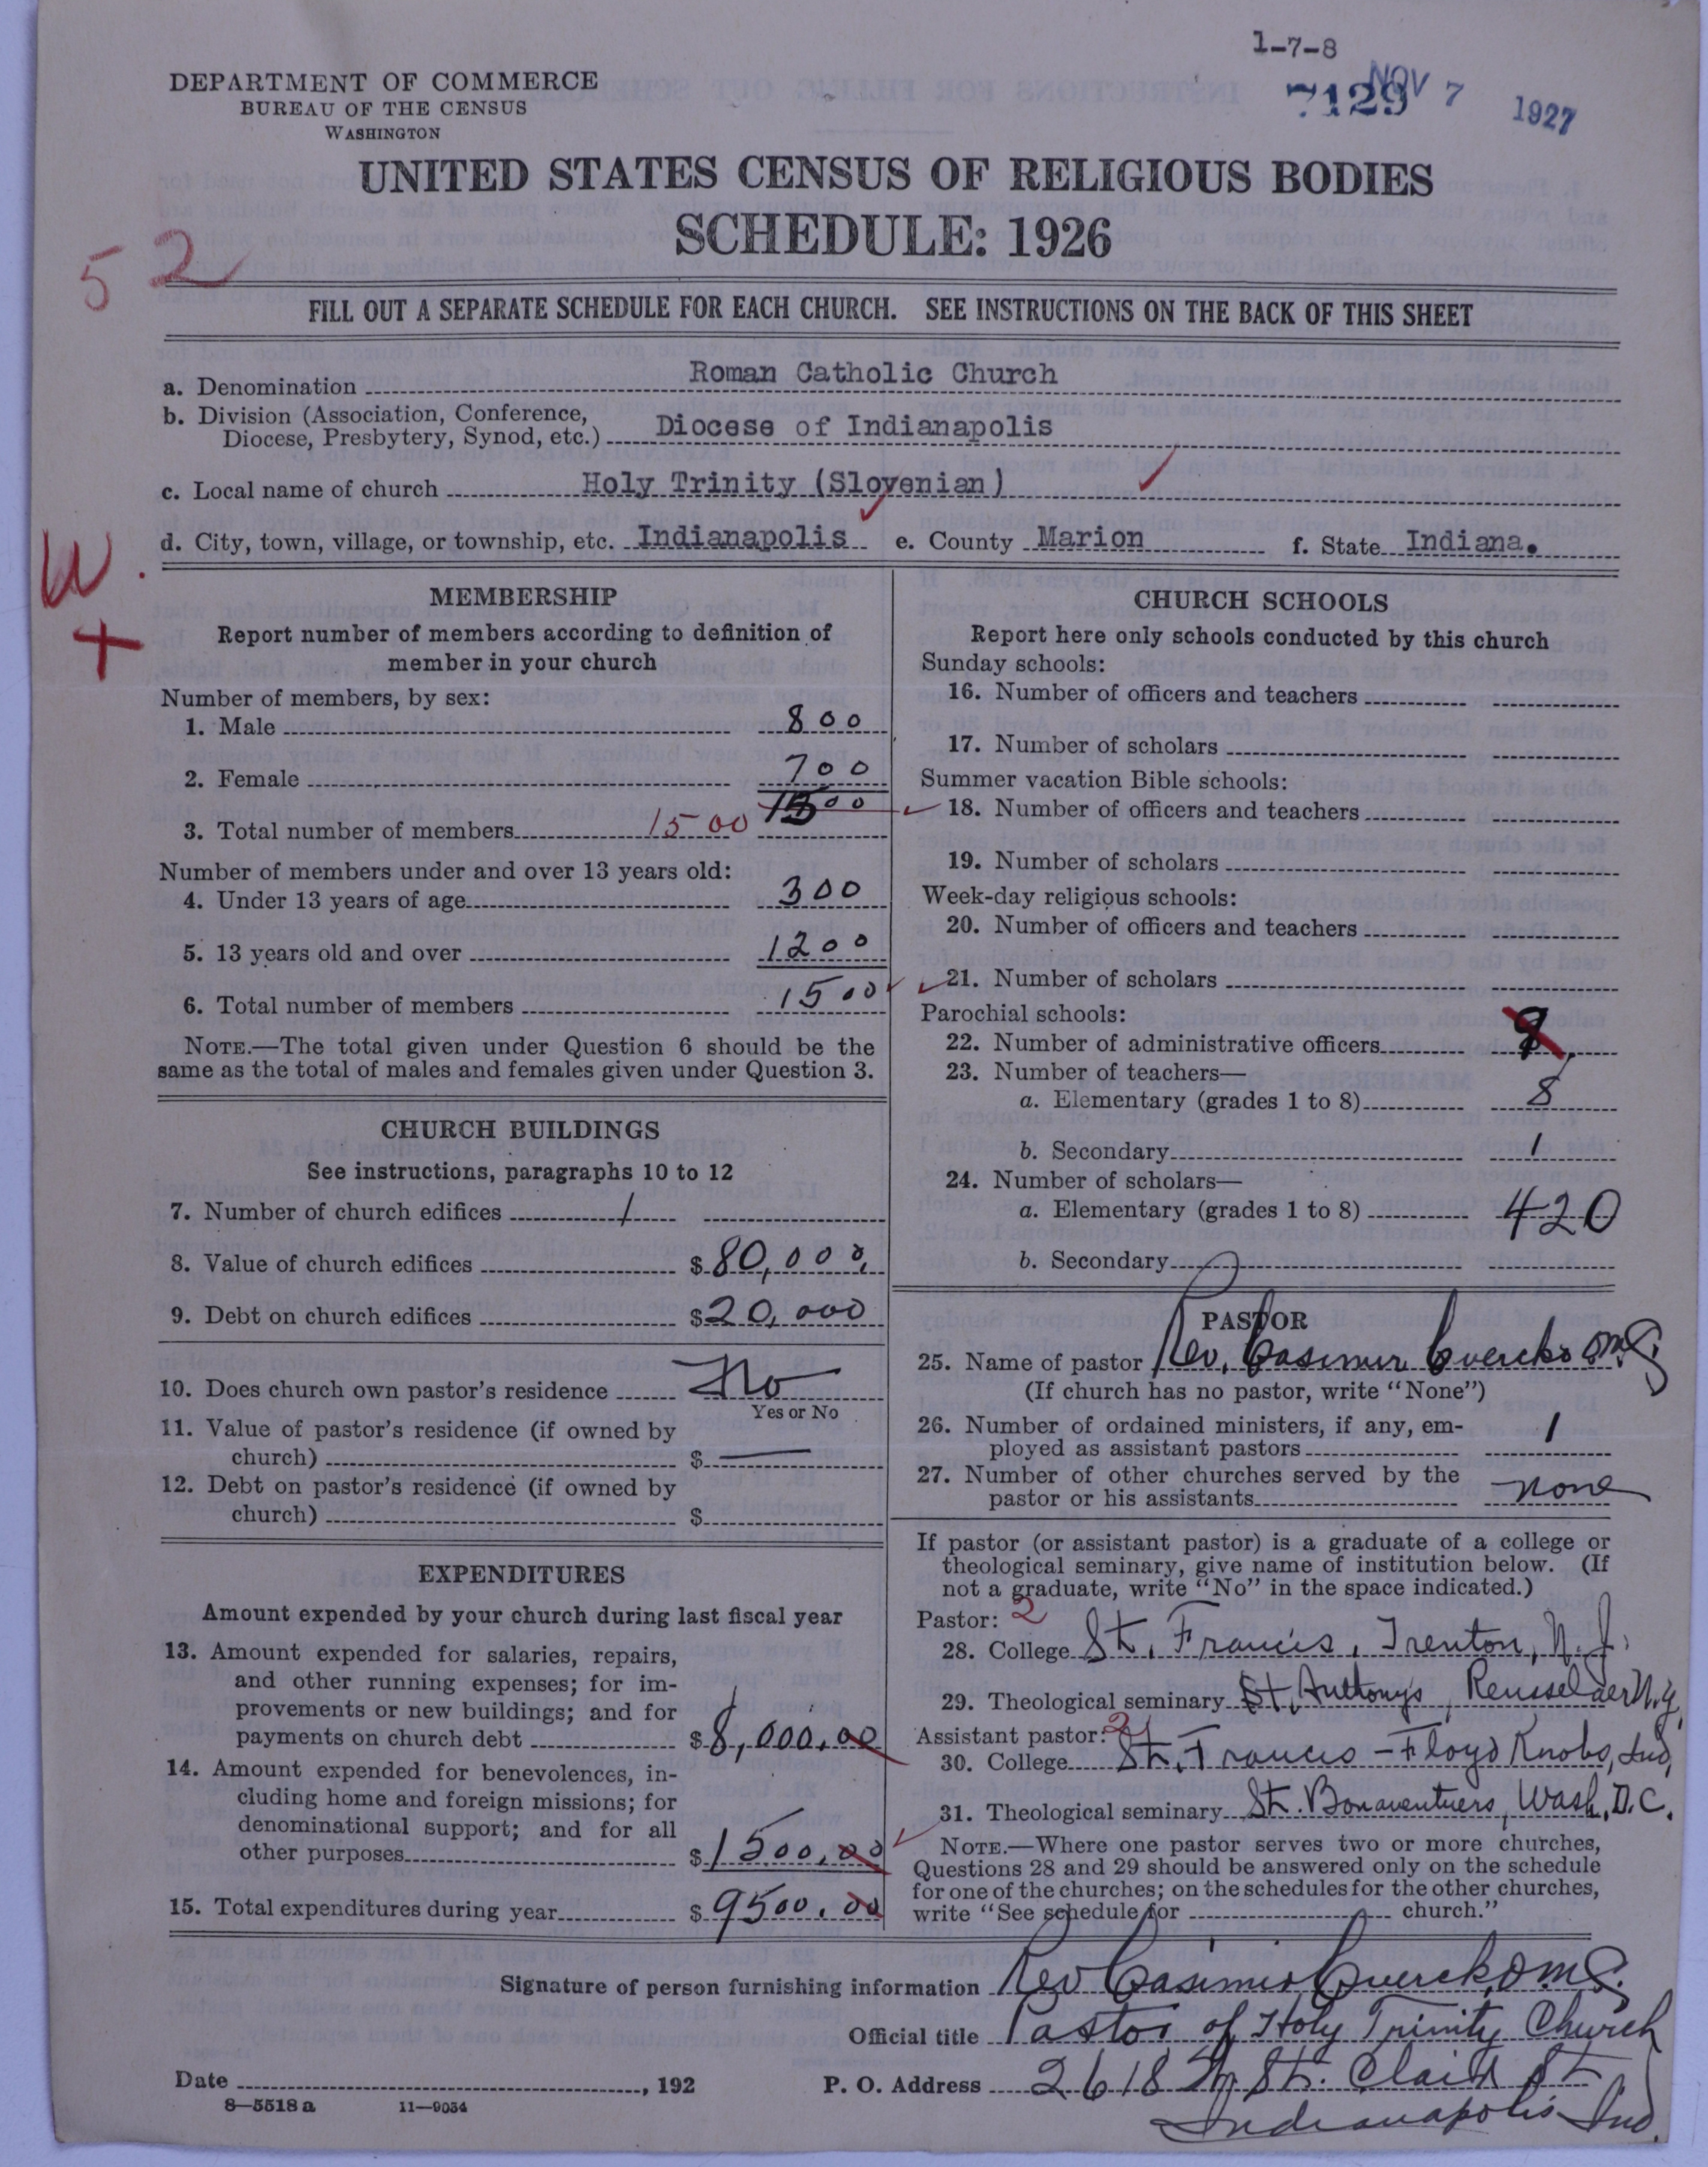 1-7-8
7129 NOV 7 1927
DEPARTMENT OF COMMERCE
BUREAU OF THE CENSUS
WASHINGTON
UNITED STATES CENSUS OF RELIGIOUS BODIES
SCHEDULE: 1926
52
FILL OUT A SEPARATE SCHEDULE FOR EACH CHURCH. SEE INSTRUCTIONS ON THE BACK OF THIS SHEET
a. Denomination Roman Catholic Church
b. Division (Association, Conference,
Diocese, Presbytery, Synod, etc.) Diocese of Indianapolis
c. Local name of church Holy Trinity (Slovenian)
d. City, town, village, or township, etc. Indianapolis e. County Marion f. State Indiana.
W.
+
MEMBERSHIP
Report number of members according to definition of
member in your church
Number of members, by sex:
1. Male 800
2. Female 700
3. Total number of members 1500 1500
Number of members under and over 13 years old:
4. Under 13 years of age 300
5. 13 years old and over 1200
6. Total number of members 1500
NOTE.—The total given under Question 6 should be the
same as the total of males and females given under Question 3.
CHURCH BUILDINGS
See instructions, paragraphs 10 to 12
7. Number of church edifices 1
8. Value of church edifices $80,000
9. Debt on church edifices $20,000
10. Does church own pastor's residence No
Yes or No
11. Value of pastor's residence (if owned by
church) $ —
12. Debt on pastor's residence (if owned by
church) $
EXPENDITURES
Amount expended by your church during last fiscal year
13. Amount expended for salaries, repairs,
and other running expenses; for im-
provements or new buildings; and for
payments on church debt $8,000.00
14. Amount expended for benevolences, in-
cluding home and foreign missions; for
denominational support; and for all
other purposes $1500.00
15. Total expenditures during year $9500.00
CHURCH SCHOOLS
Report here only schools conducted by this church
Sunday schools:
16. Number of officers and teachers
17. Number of scholars
Summer vacation Bible schools:
18. Number of officers and teachers
19. Number of scholars
Week-day religious schools:
20. Number of officers and teachers
21. Number of scholars
Parochial schools:
22. Number of administrative officers
23. Number of teachers—
a. Elementary (grades 1 to 8) 8
b. Secondary 1
24. Number of scholars—
a. Elementary (grades 1 to 8) 420
b. Secondary
PASTOR
25. Name of pastor Rev. Casimir Cvercko OMC
(If church has no pastor, write "None")
26. Number of ordained ministers, if any, em-
ployed as assistant pastors 1
27. Number of other churches served by the
pastor or his assistants none
If pastor (or assistant pastor) is a graduate of a college or
theological seminary, give name of institution below. (If
not a graduate, write "No" in the space indicated.)
Pastor: 2
28. College St. Francis, Trenton, N.J.
29. Theological seminary St. Anthonys, Rensselaer N.Y.
Assistant pastor: 2
30. College St. Francis - Floyd Knobs, Ind,
31. Theological seminary St. Bonaventuers, Wash, D.C.
NOTE.—Where one pastor serves two or more churches,
Questions 28 and 29 should be answered only on the schedule
for one of the churches; on the schedules for the other churches,
write "See schedule for church."
Signature of person furnishing information Rev Casimir Cvercko OMC.
Official title Pastor of Holy Trinity Church
Date , 192 P. O. Address 2618 W St. Clair St
Indianapolis Ind.
8—5518 a 11—9034